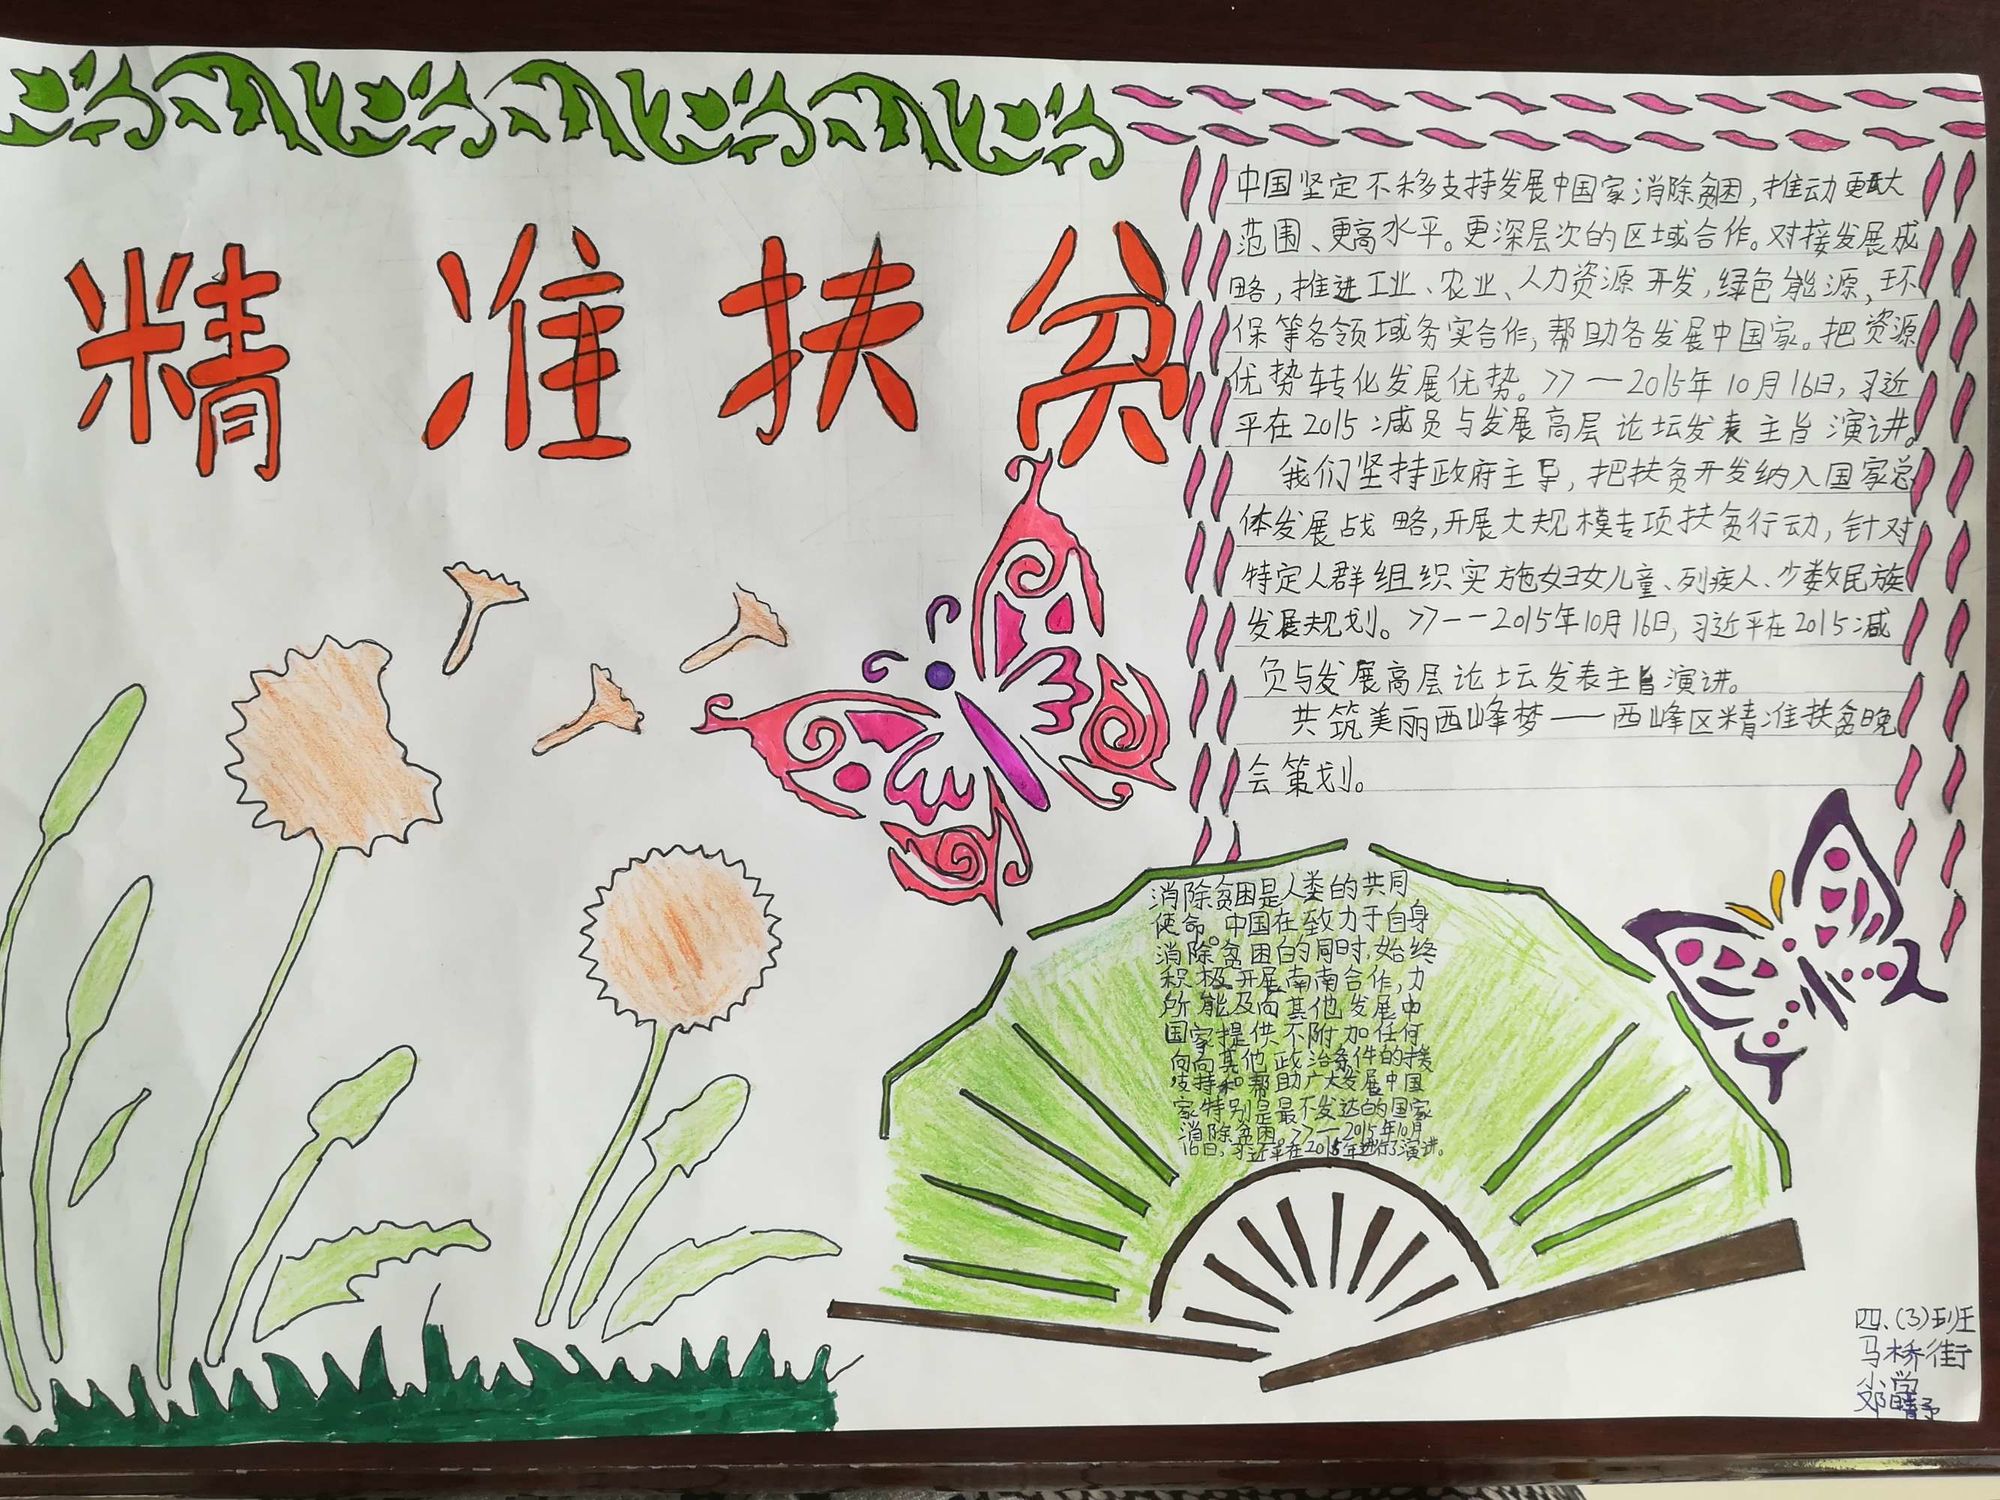 精准扶贫
中国坚定不移支持发展中国家消除贫困,推动更大
范围、更高水平。更深层次的区域合作。对接发展战
略,推进工业、农业、人力资源开发,绿色能源,环
保等各领域务实合作,帮助各发展中国家。把资源
优势转化发展优势。>>一2015年10月16日,习近
平在2015减贫与发展高层论坛发表主旨演讲。
我们坚持政府主导,把扶贫开发纳入国家总
体发展战略,开展大规模专项扶贫行动,针对
特定人群组织实施妇女儿童、列疾人、少数民族
发展规划。>>一一2015年10月16日,习近平在2015减
负与发展高层论坛发表主旨演讲。
共筑美丽西峰梦——西峰区精准扶贫晚
会策划。
消除贫困是人类的共同
使命。中国在致力于自身
消除贫困的同时,始终
积极开展南南合作,力
所能及向其他发展中
国家提供不附加任何
向向其他政治条件的援
支持和帮助广大发展中国
家特别是最不发达的国家
消除贫困。>>一2015年10月
16日,习近平在2015年进行了演讲。
四、(3)班
马桥街
小学
邓晴予